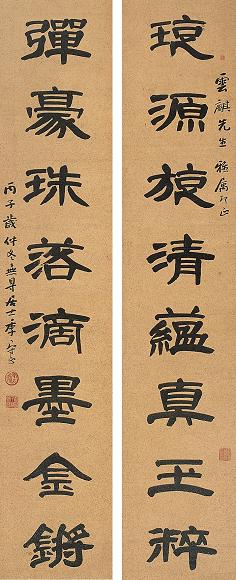 雲麒先生雅属即正
源旋清蘊真玉粹
彈豪珠落滴墨金鏘
丙子歲仲冬無量居士季